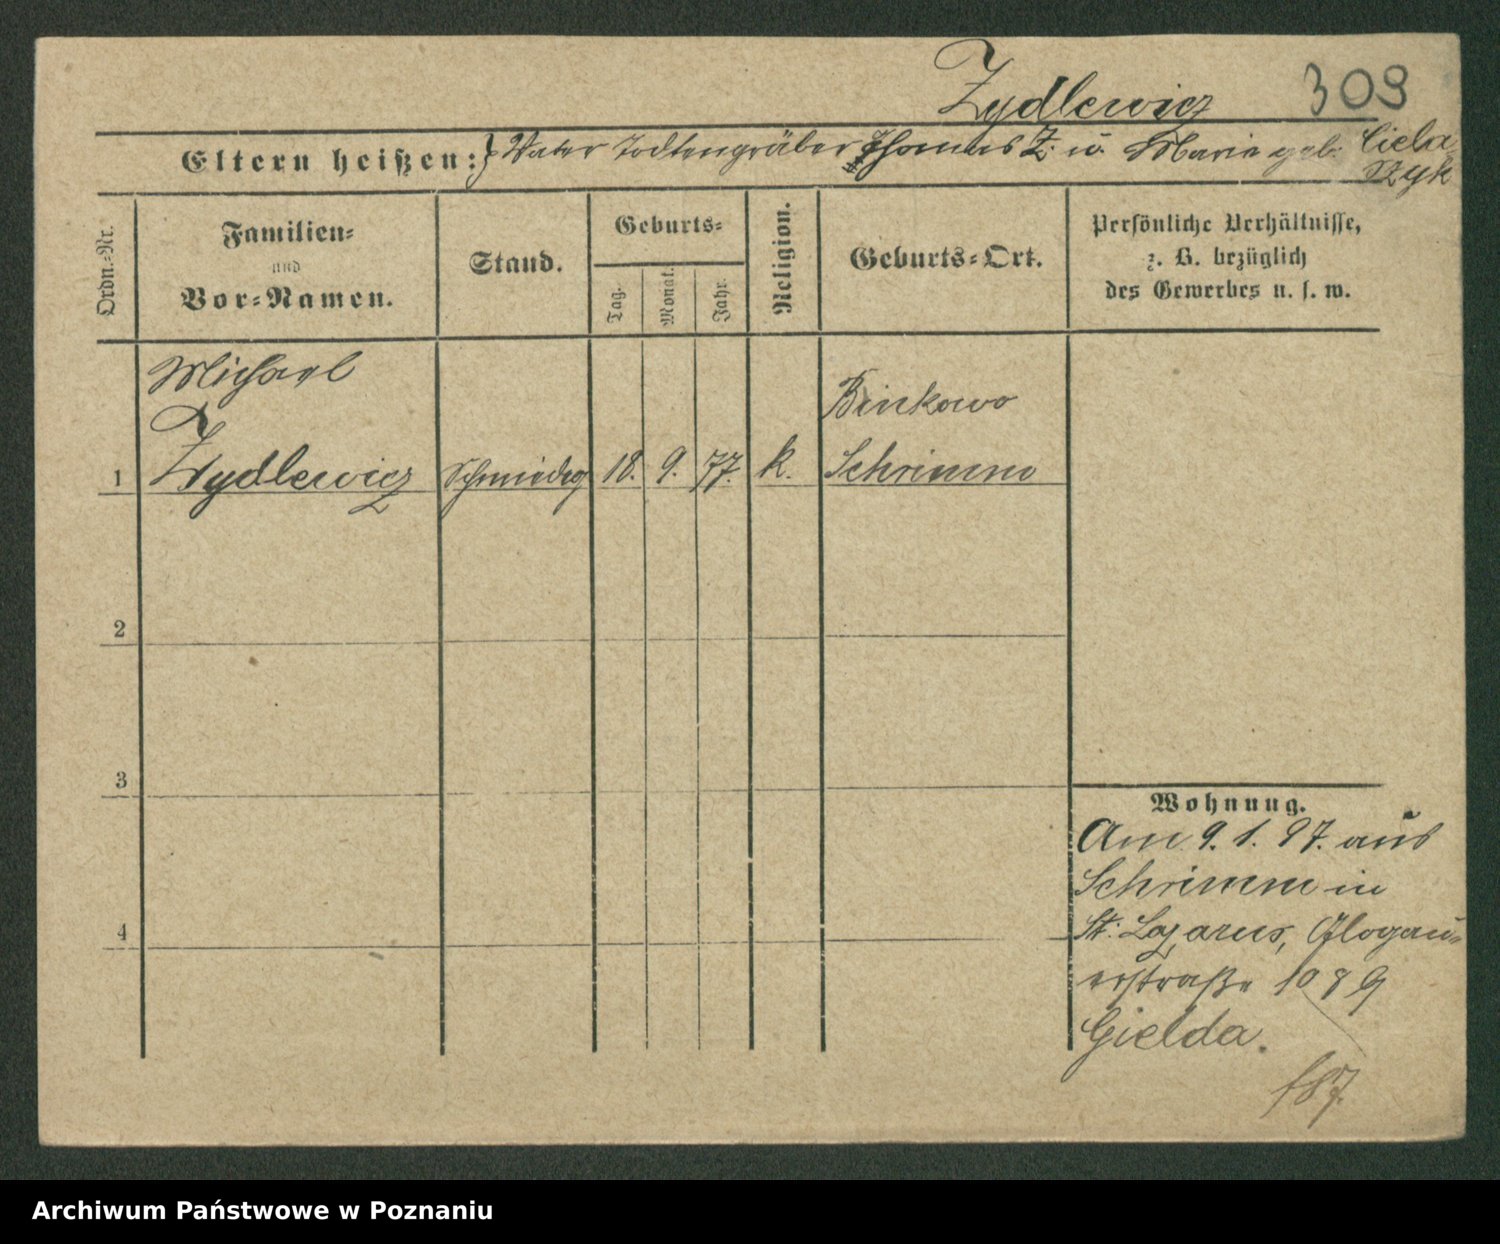 Zydlewicz 309
Eltern heißen: } Vater Todtengräber Thomas Z. u. Maria geb. Ciela
szyk
Ordn.-Nr.
Familien-
und
Vor-Namen.
Stand.
Geburts-
Tag.
Monat.
Jahr.
Religion.
Geburts-Ort.
Persönliche Verhältnisse,
z. B. bezüglich
des Gewerbes u. s. w.
Michael
Zydlewicz
1
Schmiedeg
18. 9. 77. k.
Binkowo
Schrimm
2
3
4
Wohnung.
Am 9. 1. 97. aus
Schrimm in
St. Lazarus, Glogau-
erstraße 1089
Gielda.